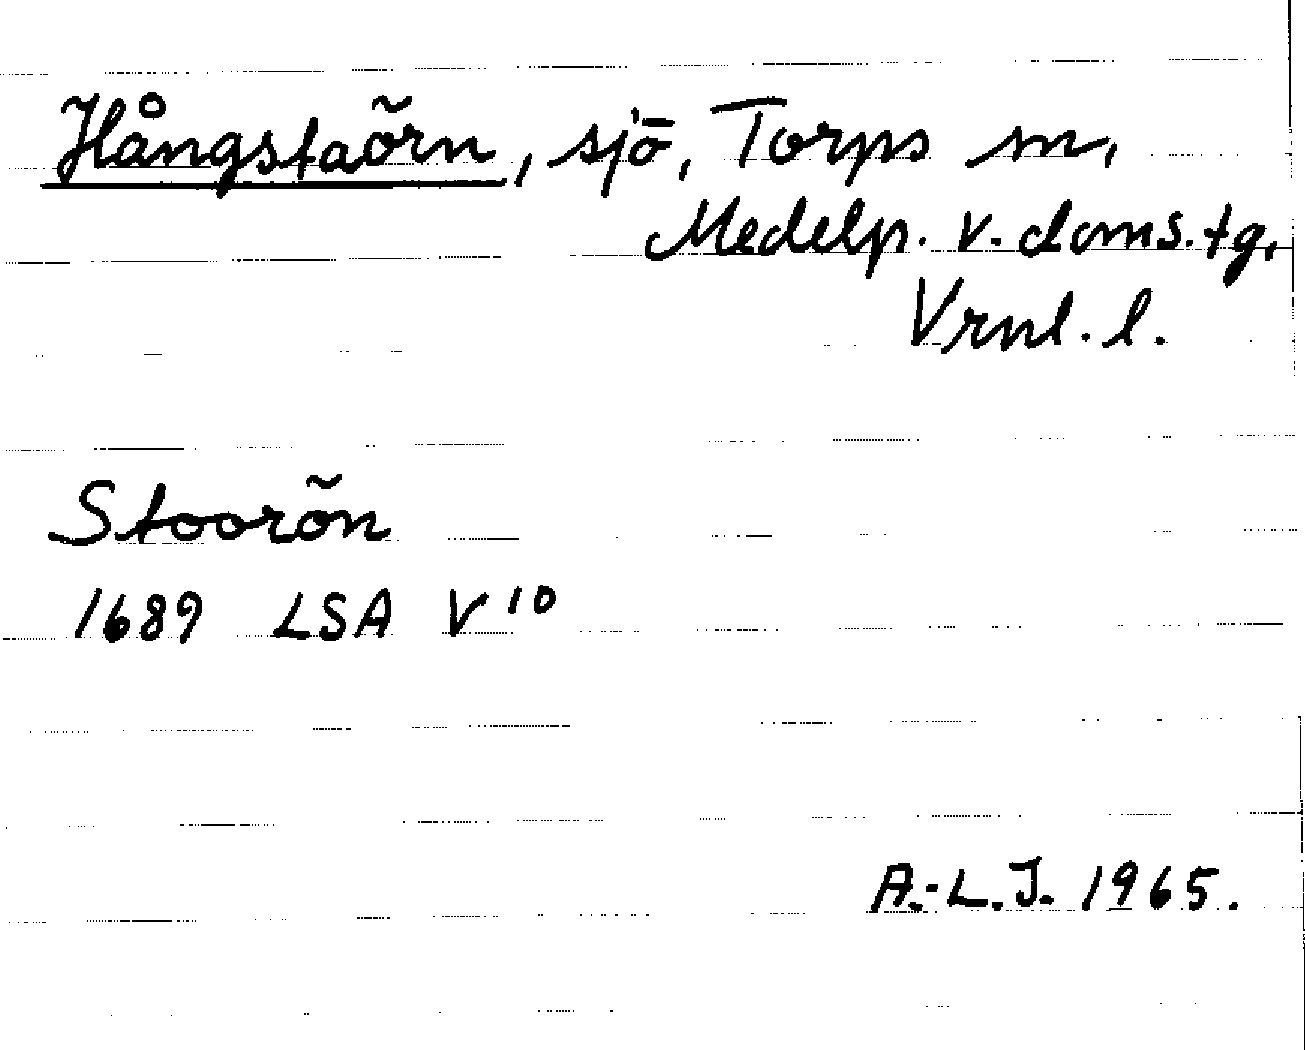 Hångstaörn, sjö, Torps sn,
Medelp. v. doms. tg,
Vrnl. l.
Stoorön
1689 LSA V 10
A.-L.J. 1965.